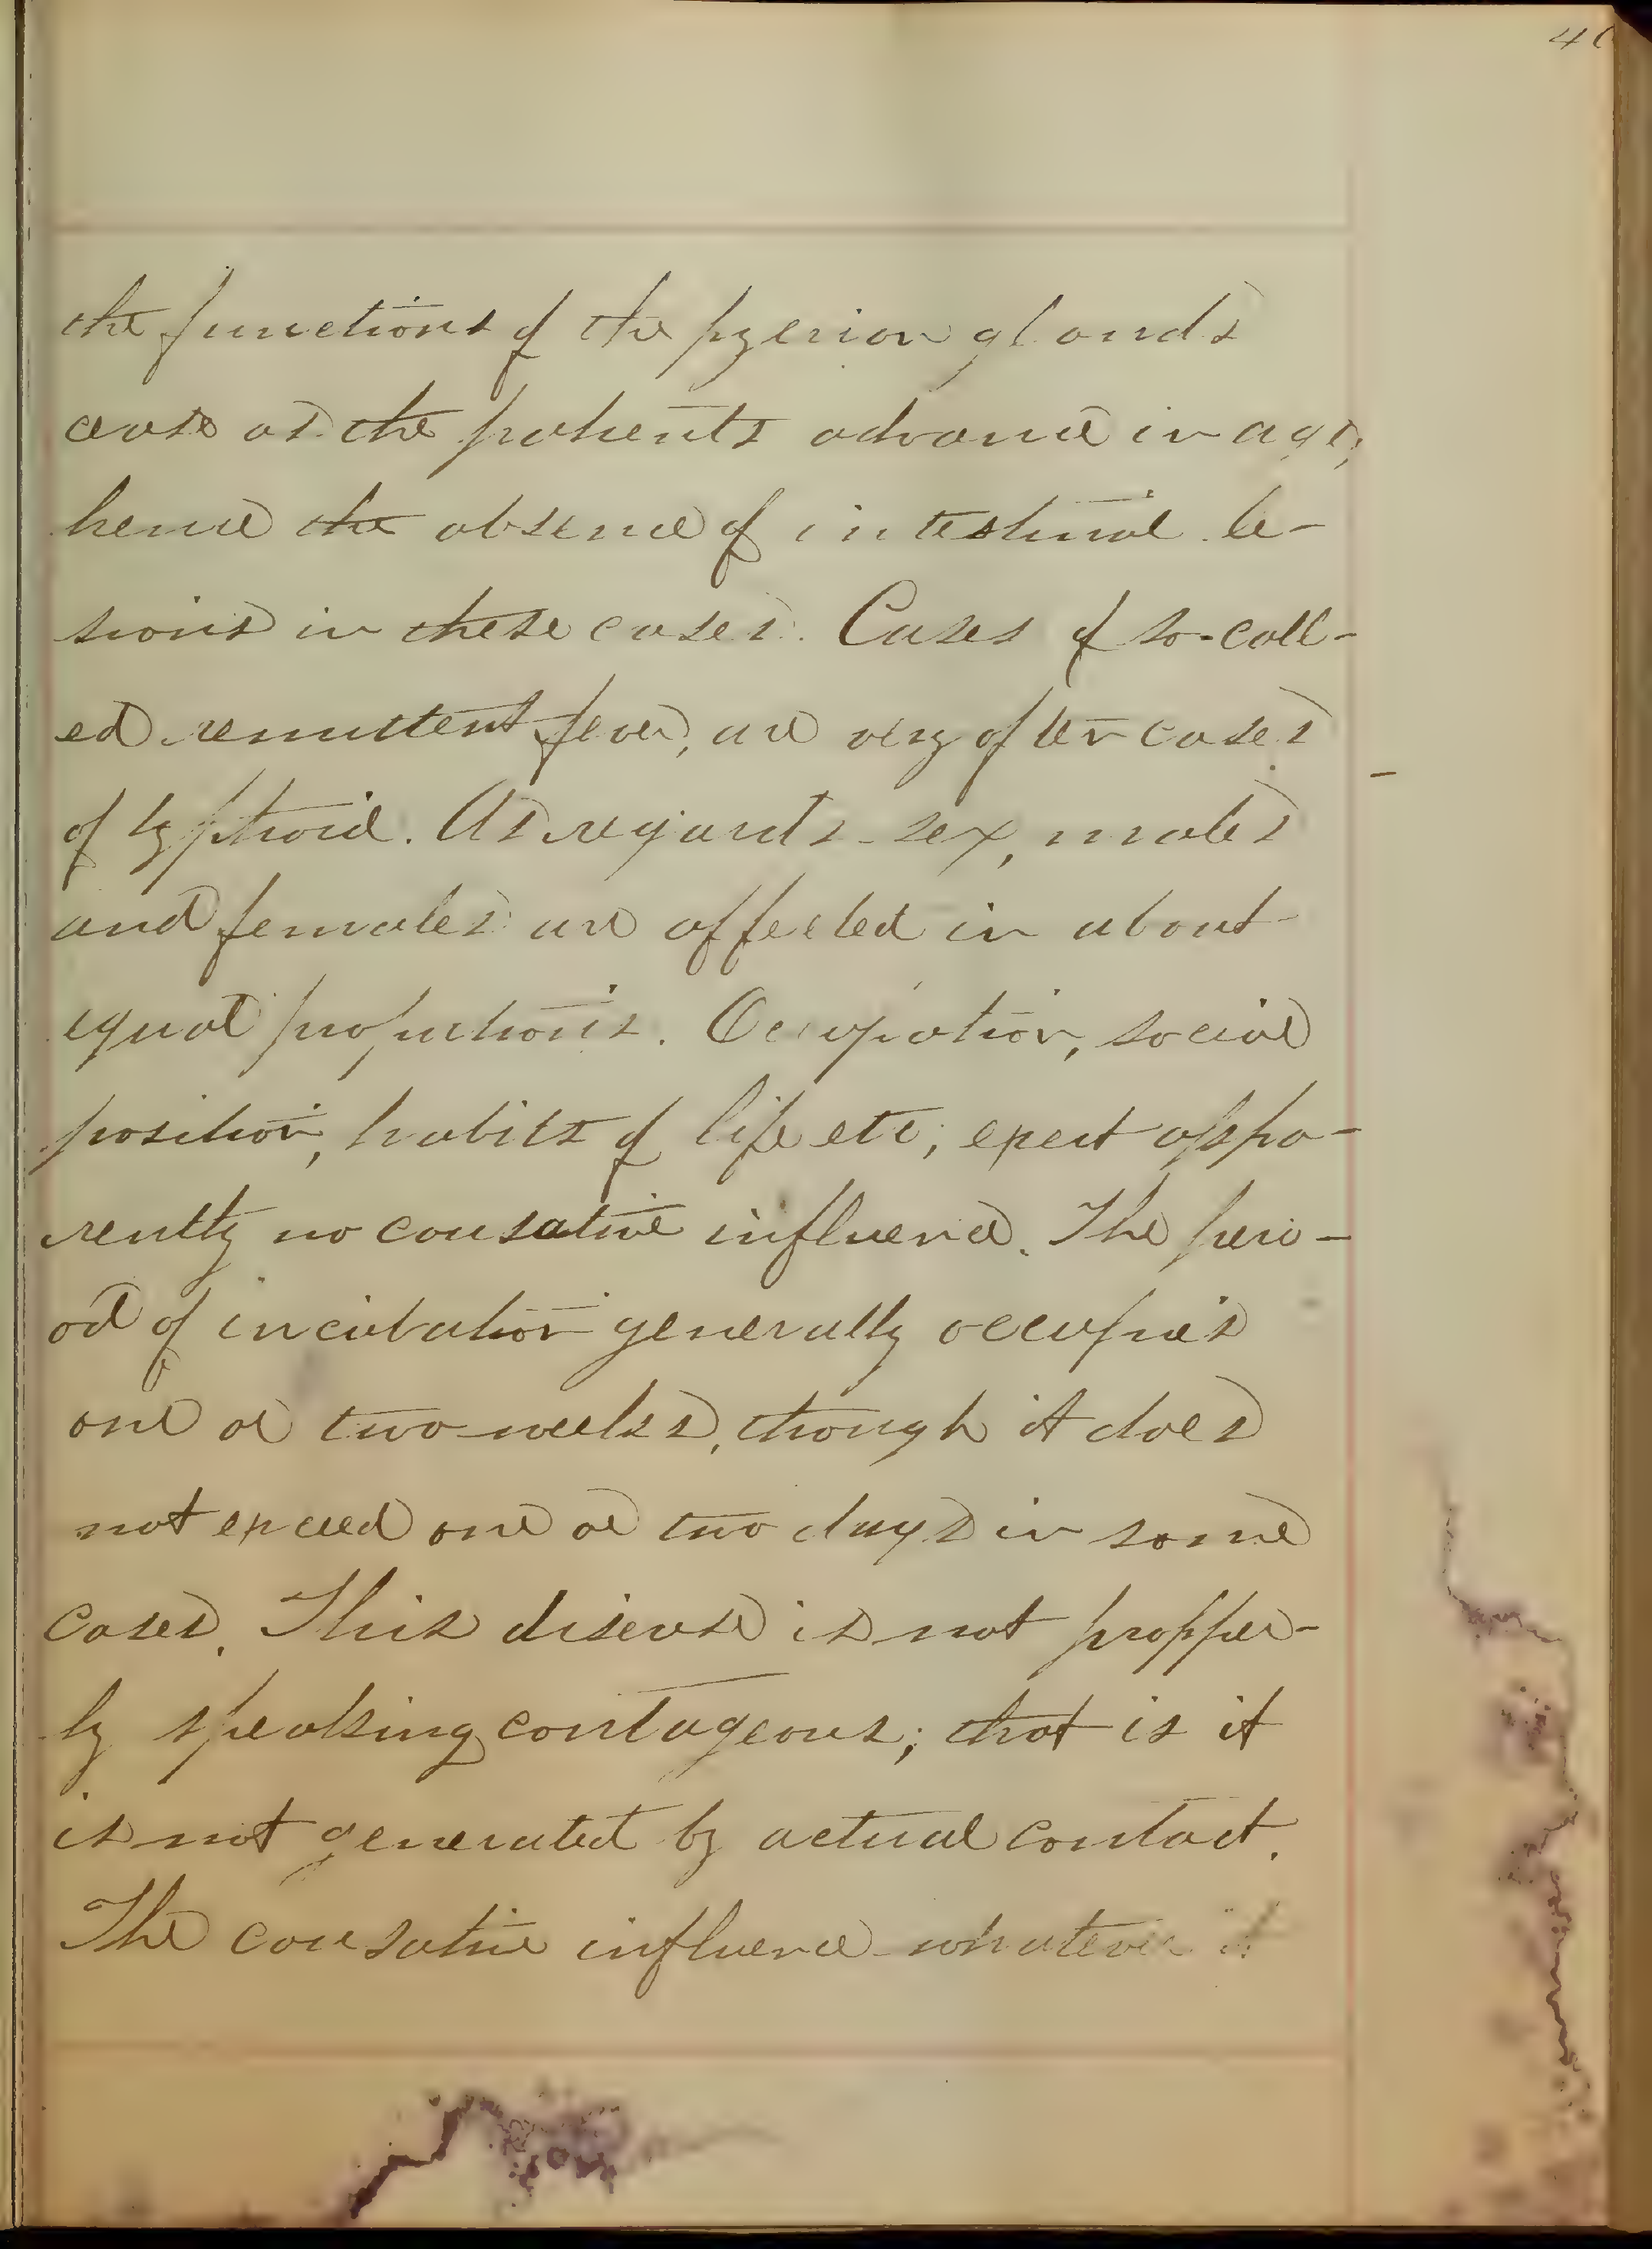 the functions of the pyerian glands
cease as the patients advance in age;
hence the absence of intestinal le-
sions in these cases. Cases of so-call-
ed remittent fever, are very often cases
of typhoid. As regards sex, males
and females are affected in about
equal proportions. Occupation, social
position, habits of life etc; exert appa-
rently no causative influence. The peri-
od of incubation generally occupies
one or two weeks, though it does
not exceed one or two days in some
cases. This disease is not propper-
ly speaking contageous; that is it
is not generated by actual contact.
The causative influence whatever it